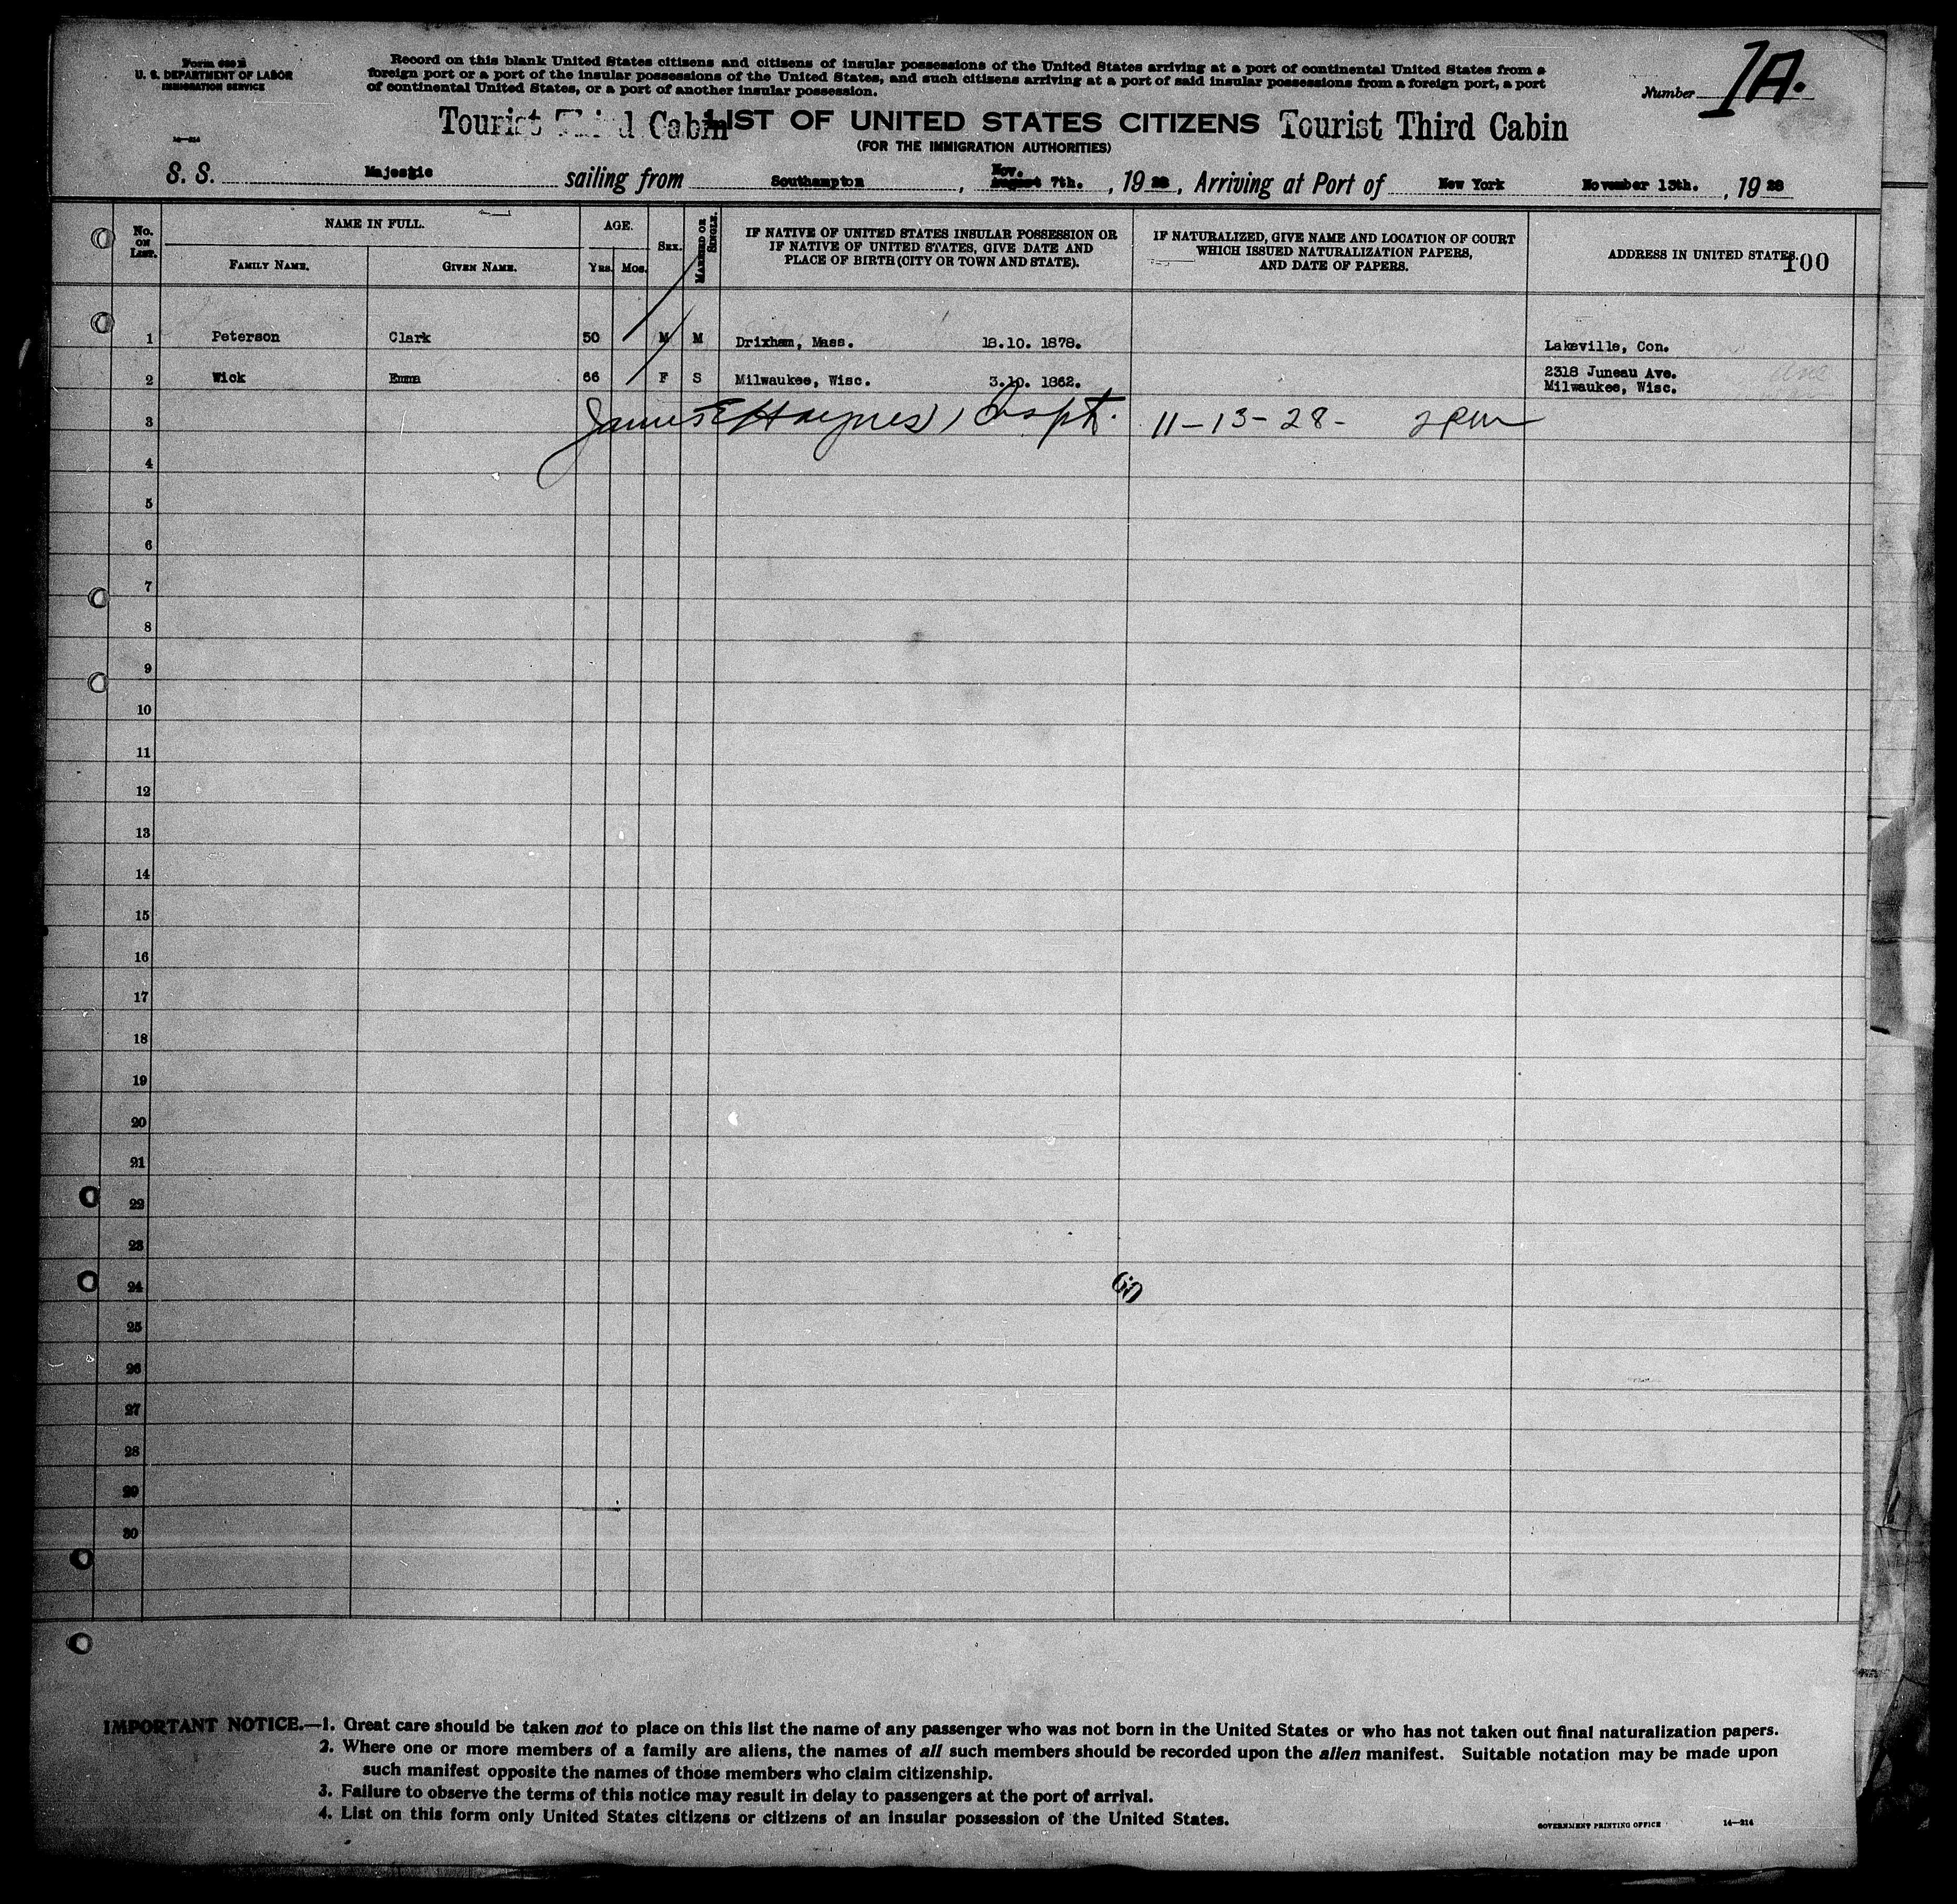 Form 630 B
U. S. DEPARTMENT OF LABOR
IMMIGRATION SERVICE
14—214
Record on this blank United States citizens and citizens of insular possessions of the United States arriving at a port of continental United States from a
foreign port or a port of the insular possessions of the United States, and such citizens arriving at a port of said insular possessions from a foreign port, a port
of continental United States, or a port of another insular possession.
Number 1A.
Tourist Third Cabin LIST OF UNITED STATES CITIZENS Tourist Third Cabin
(FOR THE IMMIGRATION AUTHORITIES)
Nov.
S. S. Majestic sailing from Southampton, August 7th., 1928, Arriving at Port of New York November 13th., 1928
No. ON LIST.
NAME IN FULL.
FAMILY NAME.
GIVEN NAME.
AGE.
YRS. MOS.
SEX.
MARRIED OR SINGLE.
IF NATIVE OF UNITED STATES INSULAR POSSESSION OR
IF NATIVE OF UNITED STATES, GIVE DATE AND
PLACE OF BIRTH (CITY OR TOWN AND STATE).
IF NATURALIZED, GIVE NAME AND LOCATION OF COURT
WHICH ISSUED NATURALIZATION PAPERS,
AND DATE OF PAPERS.
ADDRESS IN UNITED STATES.
100
1 Peterson Clark 50 M M Drixham, Mass. 18.10. 1878. Lakeville, Con.
2 Wick Emma 66 F S Milwaukee, Wisc. 3.10. 1862. 2318 Juneau Ave.
Milwaukee, Wisc.
3 James E Haynes, Inspt. 11-13-28- 2 PM
4
5
6
7
8
9
10
11
12
13
14
15
16
17
18
19
20
21
22
23
24
60
25
26
27
28
29
30
IMPORTANT NOTICE.—1. Great care should be taken not to place on this list the name of any passenger who was not born in the United States or who has not taken out final naturalization papers.
2. Where one or more members of a family are aliens, the names of all such members should be recorded upon the alien manifest. Suitable notation may be made upon
such manifest opposite the names of those members who claim citizenship.
3. Failure to observe the terms of this notice may result in delay to passengers at the port of arrival.
4. List on this form only United States citizens or citizens of an insular possession of the United States.
GOVERNMENT PRINTING OFFICE 14—214